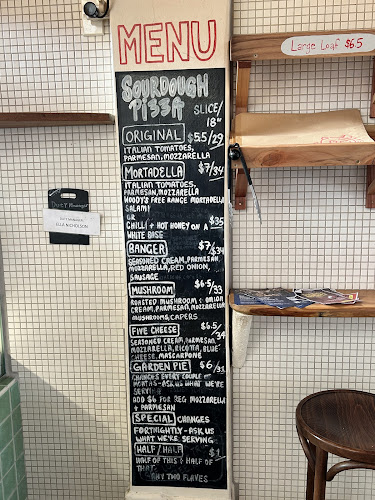 MENU
Large Loaf $6.5
SOURDOUGH
PIZZA SLICE/
18"
ORIGINAL $5.5/29
ITALIAN TOMATOES,
PARMESAN, MOZZARELLA
MORTADELLA $7/34
ITALIAN TOMATOES,
PARMESAN, MOZZARELLA
WOODY'S FREE RANGE MORTADELLA
SALAMI $35
OR
CHILLI + HOT HONEY ON A
WHITE BASE
BANGER $7/34
SEASONED CREAM, PARMESAN,
MOZZARELLA, RED ONION,
SAUSAGE
MUSHROOM $6.5/33
ROASTED MUSHROOM + ONION
CREAM, PARMESAN, MOZZARELLA
MUSHROOMS, CAPERS
FIVE CHEESE $6.5/34
SEASONED CREAM, PARMESAN,
MOZZARELLA, RICOTTA, BLUE
CHEESE, MASCARPONE
GARDEN PIE $6/
CHANGES EVERY COUPLE OF
MONTHS - ASK US WHAT WE'RE
SERVING
ADD $6 FOR REG MOZZARELLA
+ PARMESAN
SPECIAL CHANGES
FORTNIGHTLY - ASK US
WHAT WE'RE SERVING
HALF/HALF $1
HALF OF THIS & HALF OF
THAT
- ANY TWO FLAVES
ELLA NICHOLSON